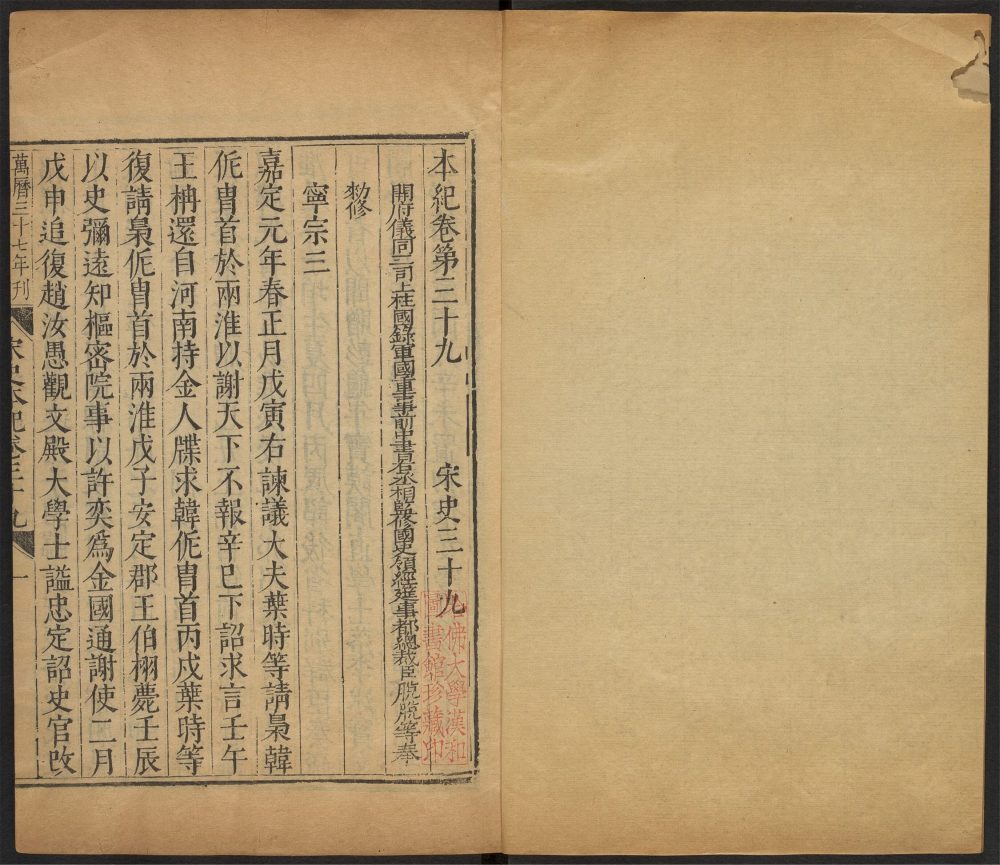 本紀卷第三十九 宋史三十九
開府儀同三司上柱國錄軍國重事前中書右丞相監修國史領經筵事都總裁臣脫脫等奉
勑修
寧宗三
嘉定元年春正月戊寅右諫議大夫葉時等請梟韓
侂胄首於兩淮以謝天下不報辛巳下詔求言壬午
王柟還自河南持金人牒求韓侂胄首丙戌葉時等
復請梟侂胄首於兩淮戊子安定郡王伯栩薨壬辰
以史彌遠知樞密院事以許奕爲金國通謝使二月
戊申追復趙汝愚觀文殿大學士謚忠定詔史官改
萬曆三十七年刊
宋史本紀卷三十九 一
佛大學漢和
圖書館珍藏印